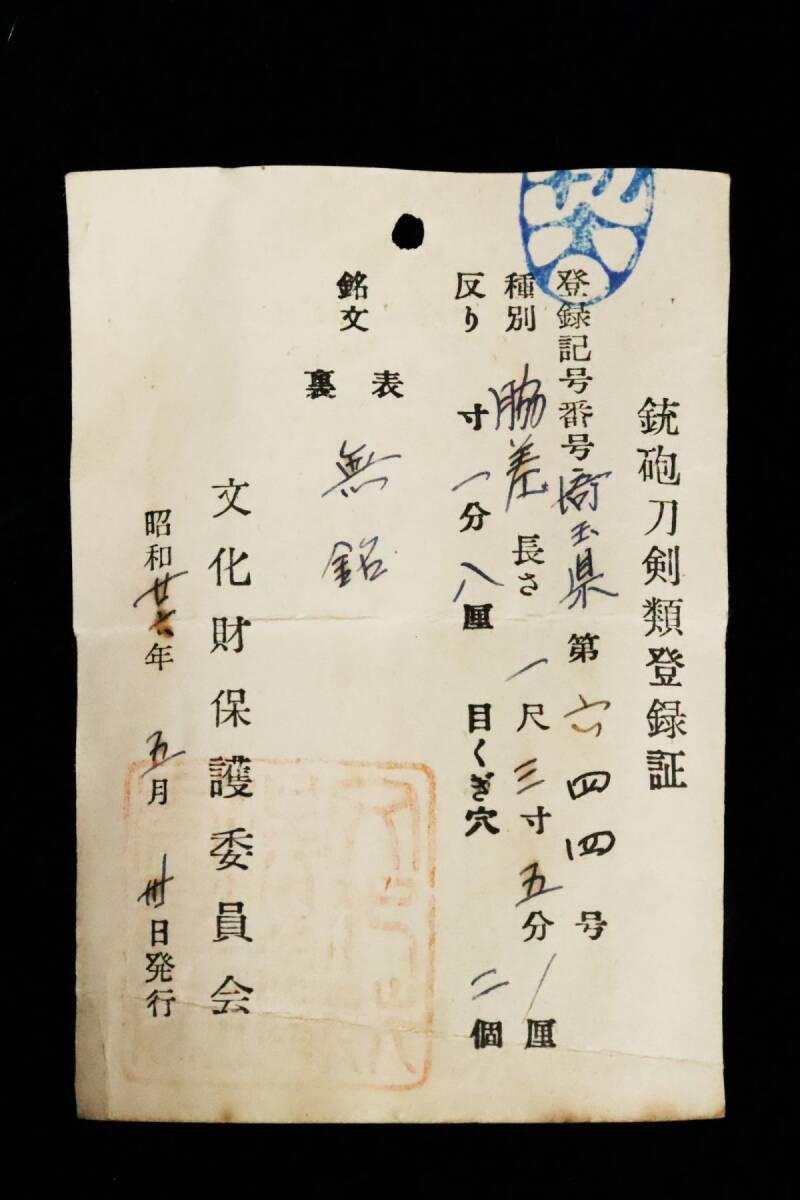 銃砲刀剣類登録証
登録記号番号 埼玉県 第六四四号
種別 脇差 長さ 一尺三寸五分 厘
反り 寸一分八厘 目くぎ穴 二個
銘文 表 無銘
裏
文化財保護委員会
昭和廿六年 五月 卅日発行